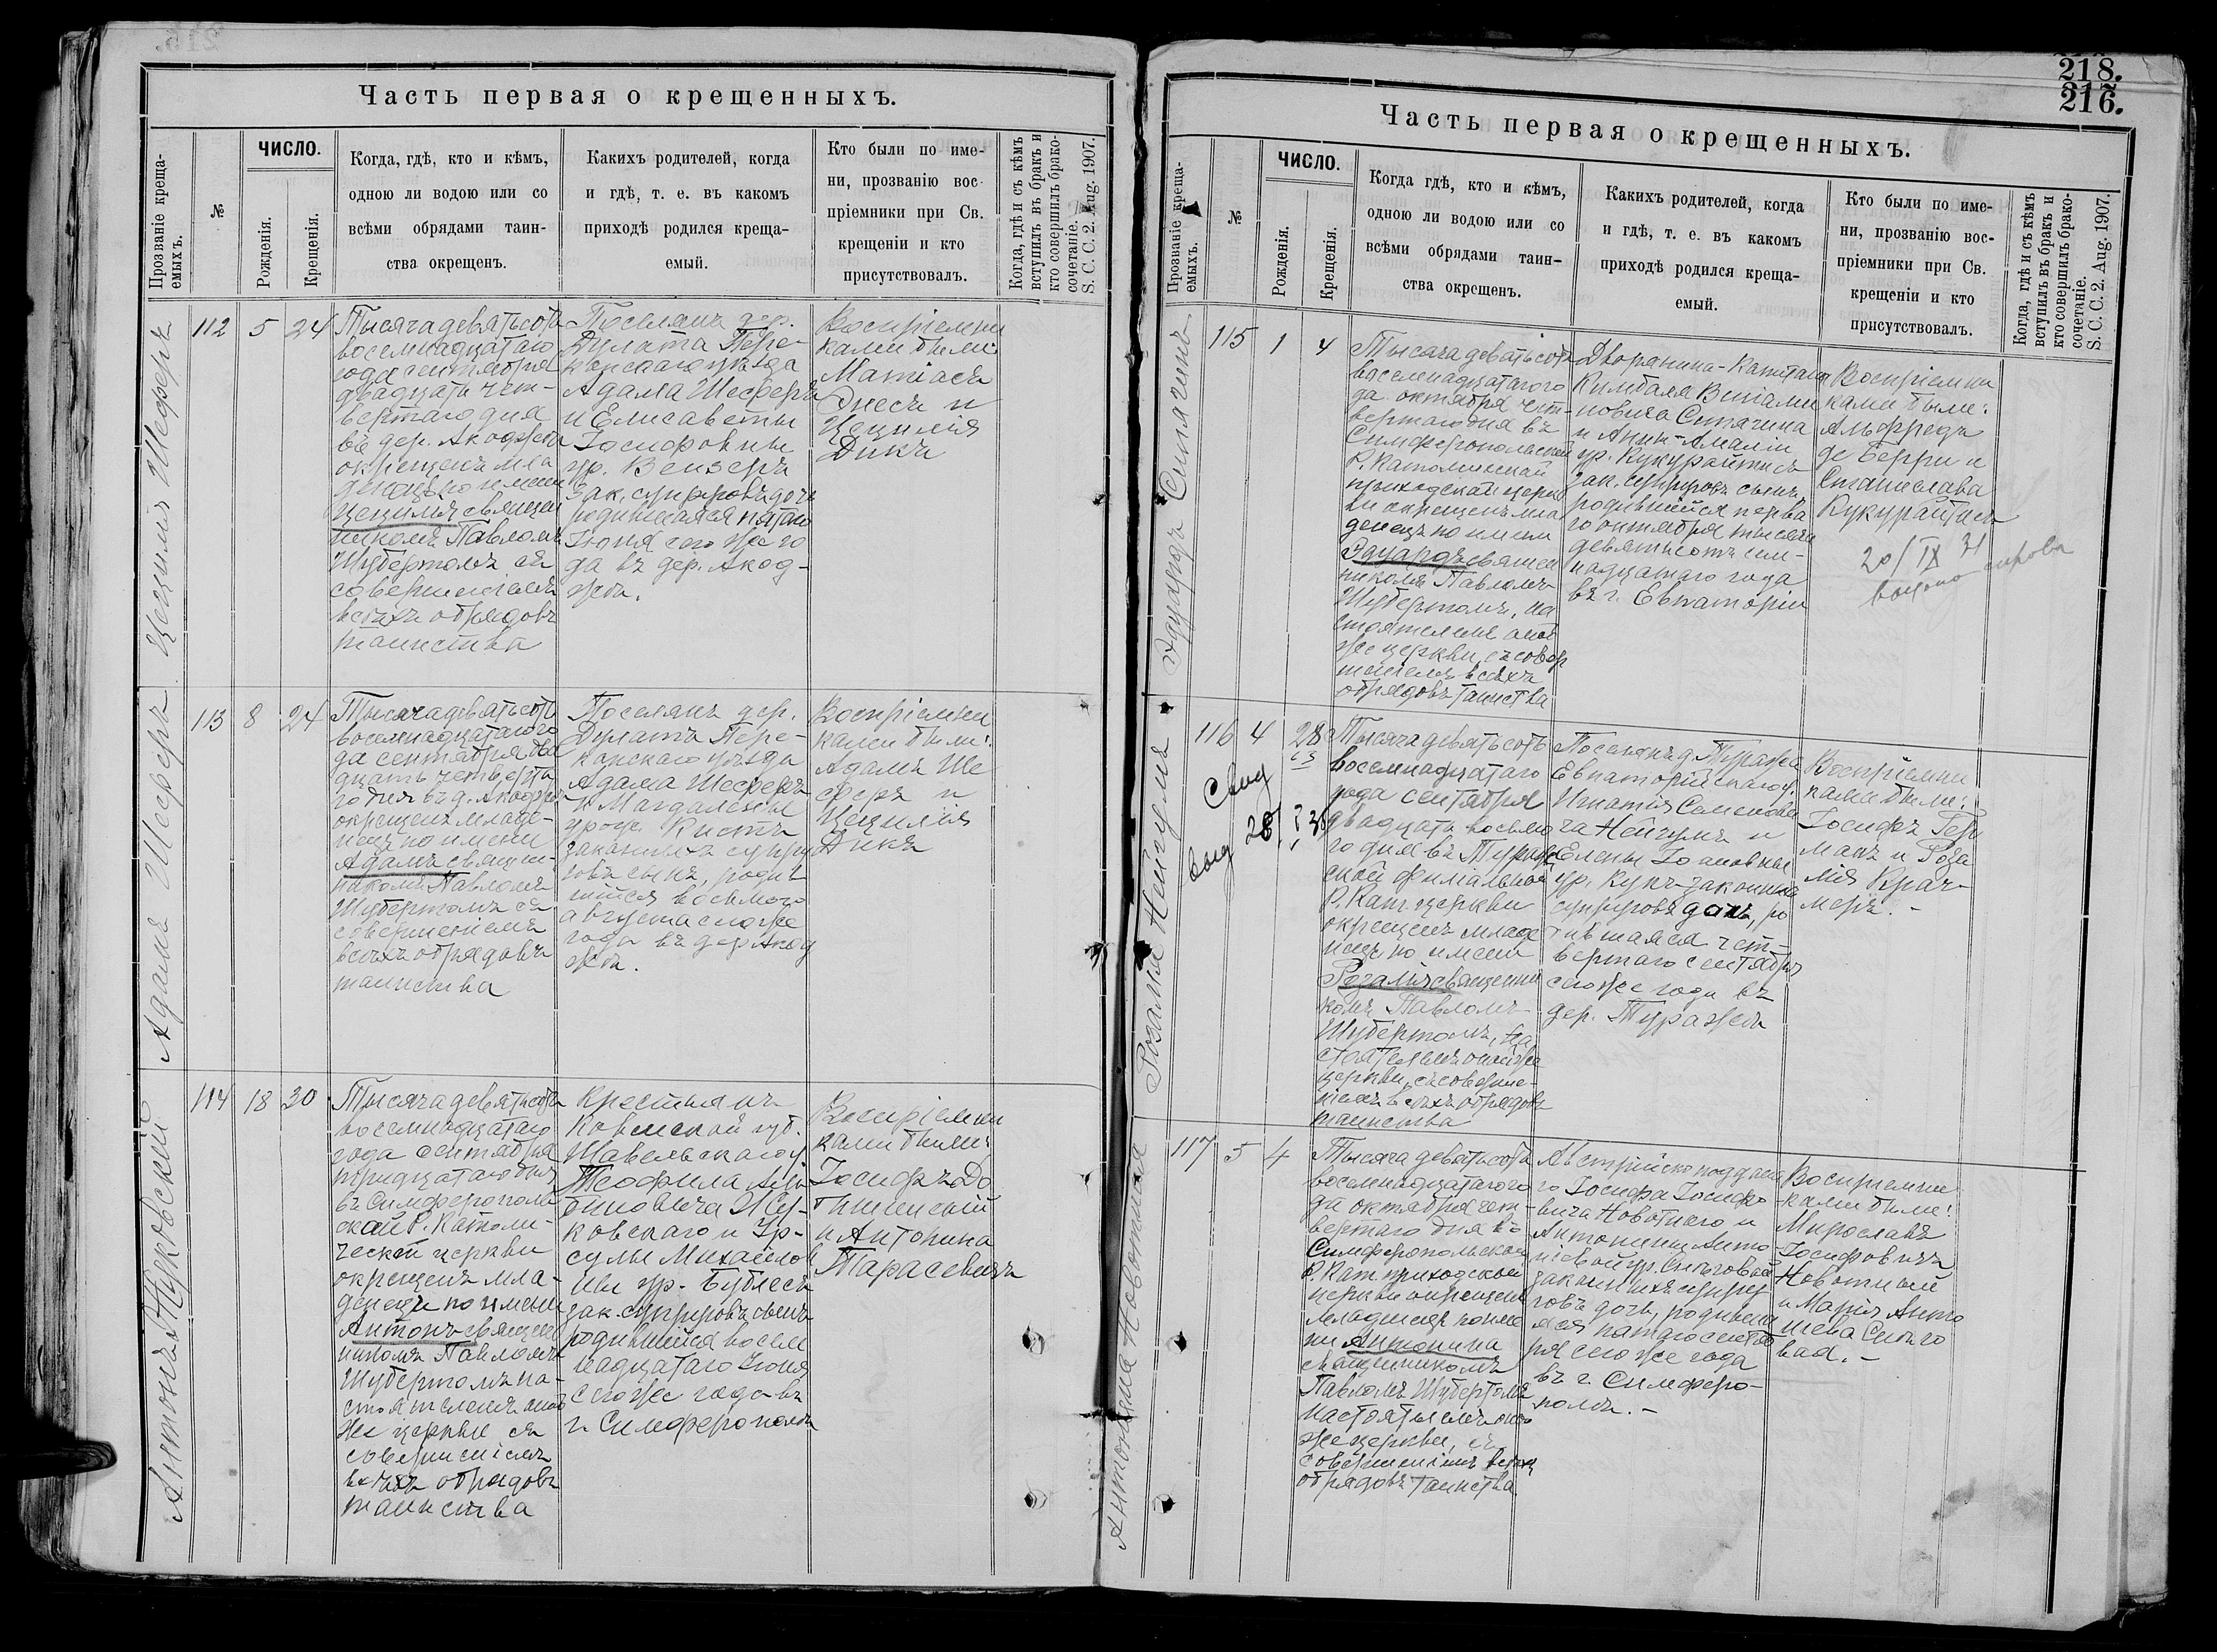 Часть первая о крещенныхъ.
Прозваніе крещаемыхъ.
№
ЧИСЛО.
Рожденія.
Крещенія.
Когда, гдѣ, кто и кѣмъ,
одною ли водою или со
всѣми обрядами таин-
ства окрещенъ.
Какихъ родителей, когда
и гдѣ, т. е. въ какомъ
приходѣ родился креща-
емый.
Кто были по име-
ни, прозванію вос-
пріемники при Св.
крещеніи и кто
присутствовалъ.
Когда, гдѣ и съ кѣмъ
вступилъ въ бракъ и
кто совершилъ брако-
сочетаніе.
S. C. C. 2. Aug. 1907.
Цецилія Шеферъ
112
5
24
Тысяча девятьсотъ
восемнадцатаго
года сентября
двадцать чет-
вертаго дня
въ дер. Акоджа
окрещенъ мла
денецъ по имени
Цецилія священ
никомъ Павломъ
Шубертомъ съ
совершеніемъ
всѣхъ обрядовъ
таинства
Поселянъ дер.
Дулата Пере-
копскаго уѣзда
Адама Шеферъ
и Елисаветы
Іосифовны
ур. Вейзеръ
зак. супруговъ дочь
родившаяся пятаго
Іюня сего же го
да въ дер. Акод-
жа.
Воспріемни
ками были:
Матіасъ
и
Цецилія
Дикъ
Адамъ Шеферъ
113
8
24
Тысяча девятьсотъ
восемнадцатаго го
да сентября два
дцать четверта
го дня въ д. Акодж
окрещенъ младе-
нецъ по имени
Адамъ священ-
никомъ Павломъ
Шубертомъ съ
совершеніемъ
всѣхъ обрядовъ
таинства
Поселянъ дер.
Дулатъ Пере-
копскаго уѣзда
Адама Шеферъ
и Магдалены
урож. Кистъ
законныхъ супру
говъ сынъ, родив
шійся восьмого
августа сего же
года въ дер. Акод
жа.
Воспріемни
ками были:
Адамъ Ше
феръ и
Цецилія
Дикъ
Антонъ Жуковскій
114
18
30
Тысяча девятьсотъ
восемнадцатаго
года сентября
тридцатаго дня
въ Симферополь
ской Р. Католи-
ческой церкви
окрещенъ мла-
денецъ по имени
Антонъ священ
никомъ Павломъ
Шубертомъ на-
стоятелемъ оной
же церкви съ
совершеніемъ
всѣхъ обрядовъ
таинства
Крестьянъ
Ковенской губ.
Шавельскаго у.
Теофила
Жу-
ковскаго и Ур-
сулы Михайлов
ны ур.
зак. супруговъ сынъ
родившійся восем
надцатаго Іюня
сего же года въ
г. Симферополѣ
Воспріемни
ками были:
Іосифъ До
и Антонина
Тарасевичъ
218.
216.
Часть первая о крещенныхъ.
Прозваніе крещаемыхъ.
№
ЧИСЛО.
Рожденія.
Крещенія.
Когда гдѣ, кто и кѣмъ,
одною ли водою или со
всѣми обрядами таин-
ства окрещенъ.
Какихъ родителей, когда
и гдѣ, т. е. въ какомъ
приходѣ родился креща-
емый.
Кто были по име-
ни, прозванію вос-
пріемники при Св.
крещеніи и кто
присутствовалъ.
Когда, гдѣ и съ кѣмъ
вступилъ въ бракъ и
кто совершилъ брако-
сочетаніе.
S. C. C. 2. Aug. 1907.
Эдуардъ Синягинъ
115
1
4
Тысяча девятьсотъ
восемнадцатаго го
да октября чет-
вертаго дня въ
Симферопольской
Р. Католической
приходской церк
ви окрещенъ мла
денецъ по имени
Эдуардъ священ
никомъ Павломъ
Шубертомъ, на
стоятелемъ оной
же церкви, съ совер
шеніемъ всѣхъ
обрядовъ таинства
Дворянина-Капитана
новича Синягина
и Анны-Амаліи
ур. Кукурайтисъ
зак. супруговъ сынъ
родившійся перва
го октября тысяча
девятьсотъ сем-
надцатаго года
въ г. Евпаторіи
Воспріемни
ками были:
Альфредъ
де Ферри и
Станислава
Кукурайтисъ
20/IX 31
Розалія Нейгумъ
116
4
28
Тысяча девятьсотъ
восемнадцатаго
года сентября
двадцать восьмо
го дня въ Тураж
ской филіальной
Р. Кат. церкви
окрещенъ младе
нецъ по имени
Розалія священни
комъ Павломъ
Шубертомъ, на
стоятелемъ оной же
церкви, съ соверше-
ніемъ всѣхъ обрядовъ
таинства
Поселянъ д. Туражи
Евпаторійскаго у.
Игнатія Семенови
ча Нейгумъ и
Елены Іоановны
ур. Кукъ законныхъ
супруговъ дочь, ро
дившаяся чет-
вертаго сентября
сего же года въ
дер. Туражи
Воспріемни
ками были:
Іосифъ Гер
манъ и Роза
лія Крач-
меръ. -
Антонина Новотная
117
5
4
Тысяча девятьсотъ
восемнадцатаго го
да октября чет-
вертаго дня въ
Симферопольской
Р. Кат. приходской
церкви окрещенъ
младенецъ по име
ни Антонина
священникомъ
Павломъ Шубертомъ
настоятелемъ оной
же церкви, съ
совершеніемъ всѣхъ
обрядовъ таинства
Австрійскоподданна
го Іосифа Іосифо-
вича Новотнаго и
Антонины Анто
ніевой ур.
законныхъ супру
говъ дочь, родивша
яся пятаго сентяб
ря сего же года
въ г. Симферо-
полѣ. -
Воспріемни
ками были:
Мирославъ
Іосифовичъ
Новотный
и Марія Анто
ніева
вая. -